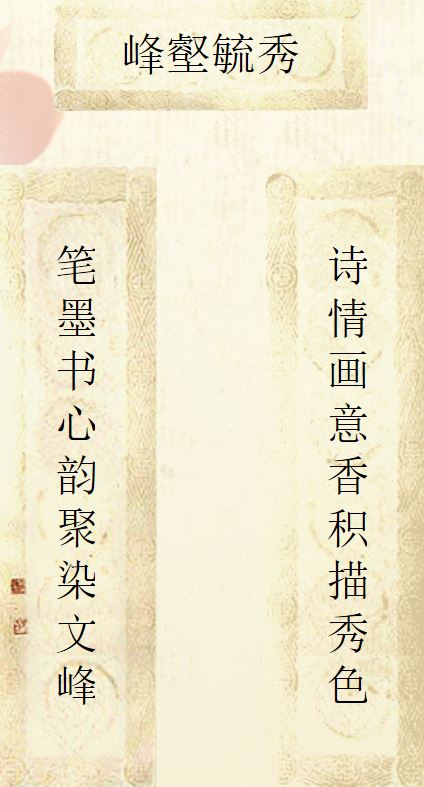 峰壑毓秀
诗情画意香积描秀色
笔墨书心韵聚染文峰